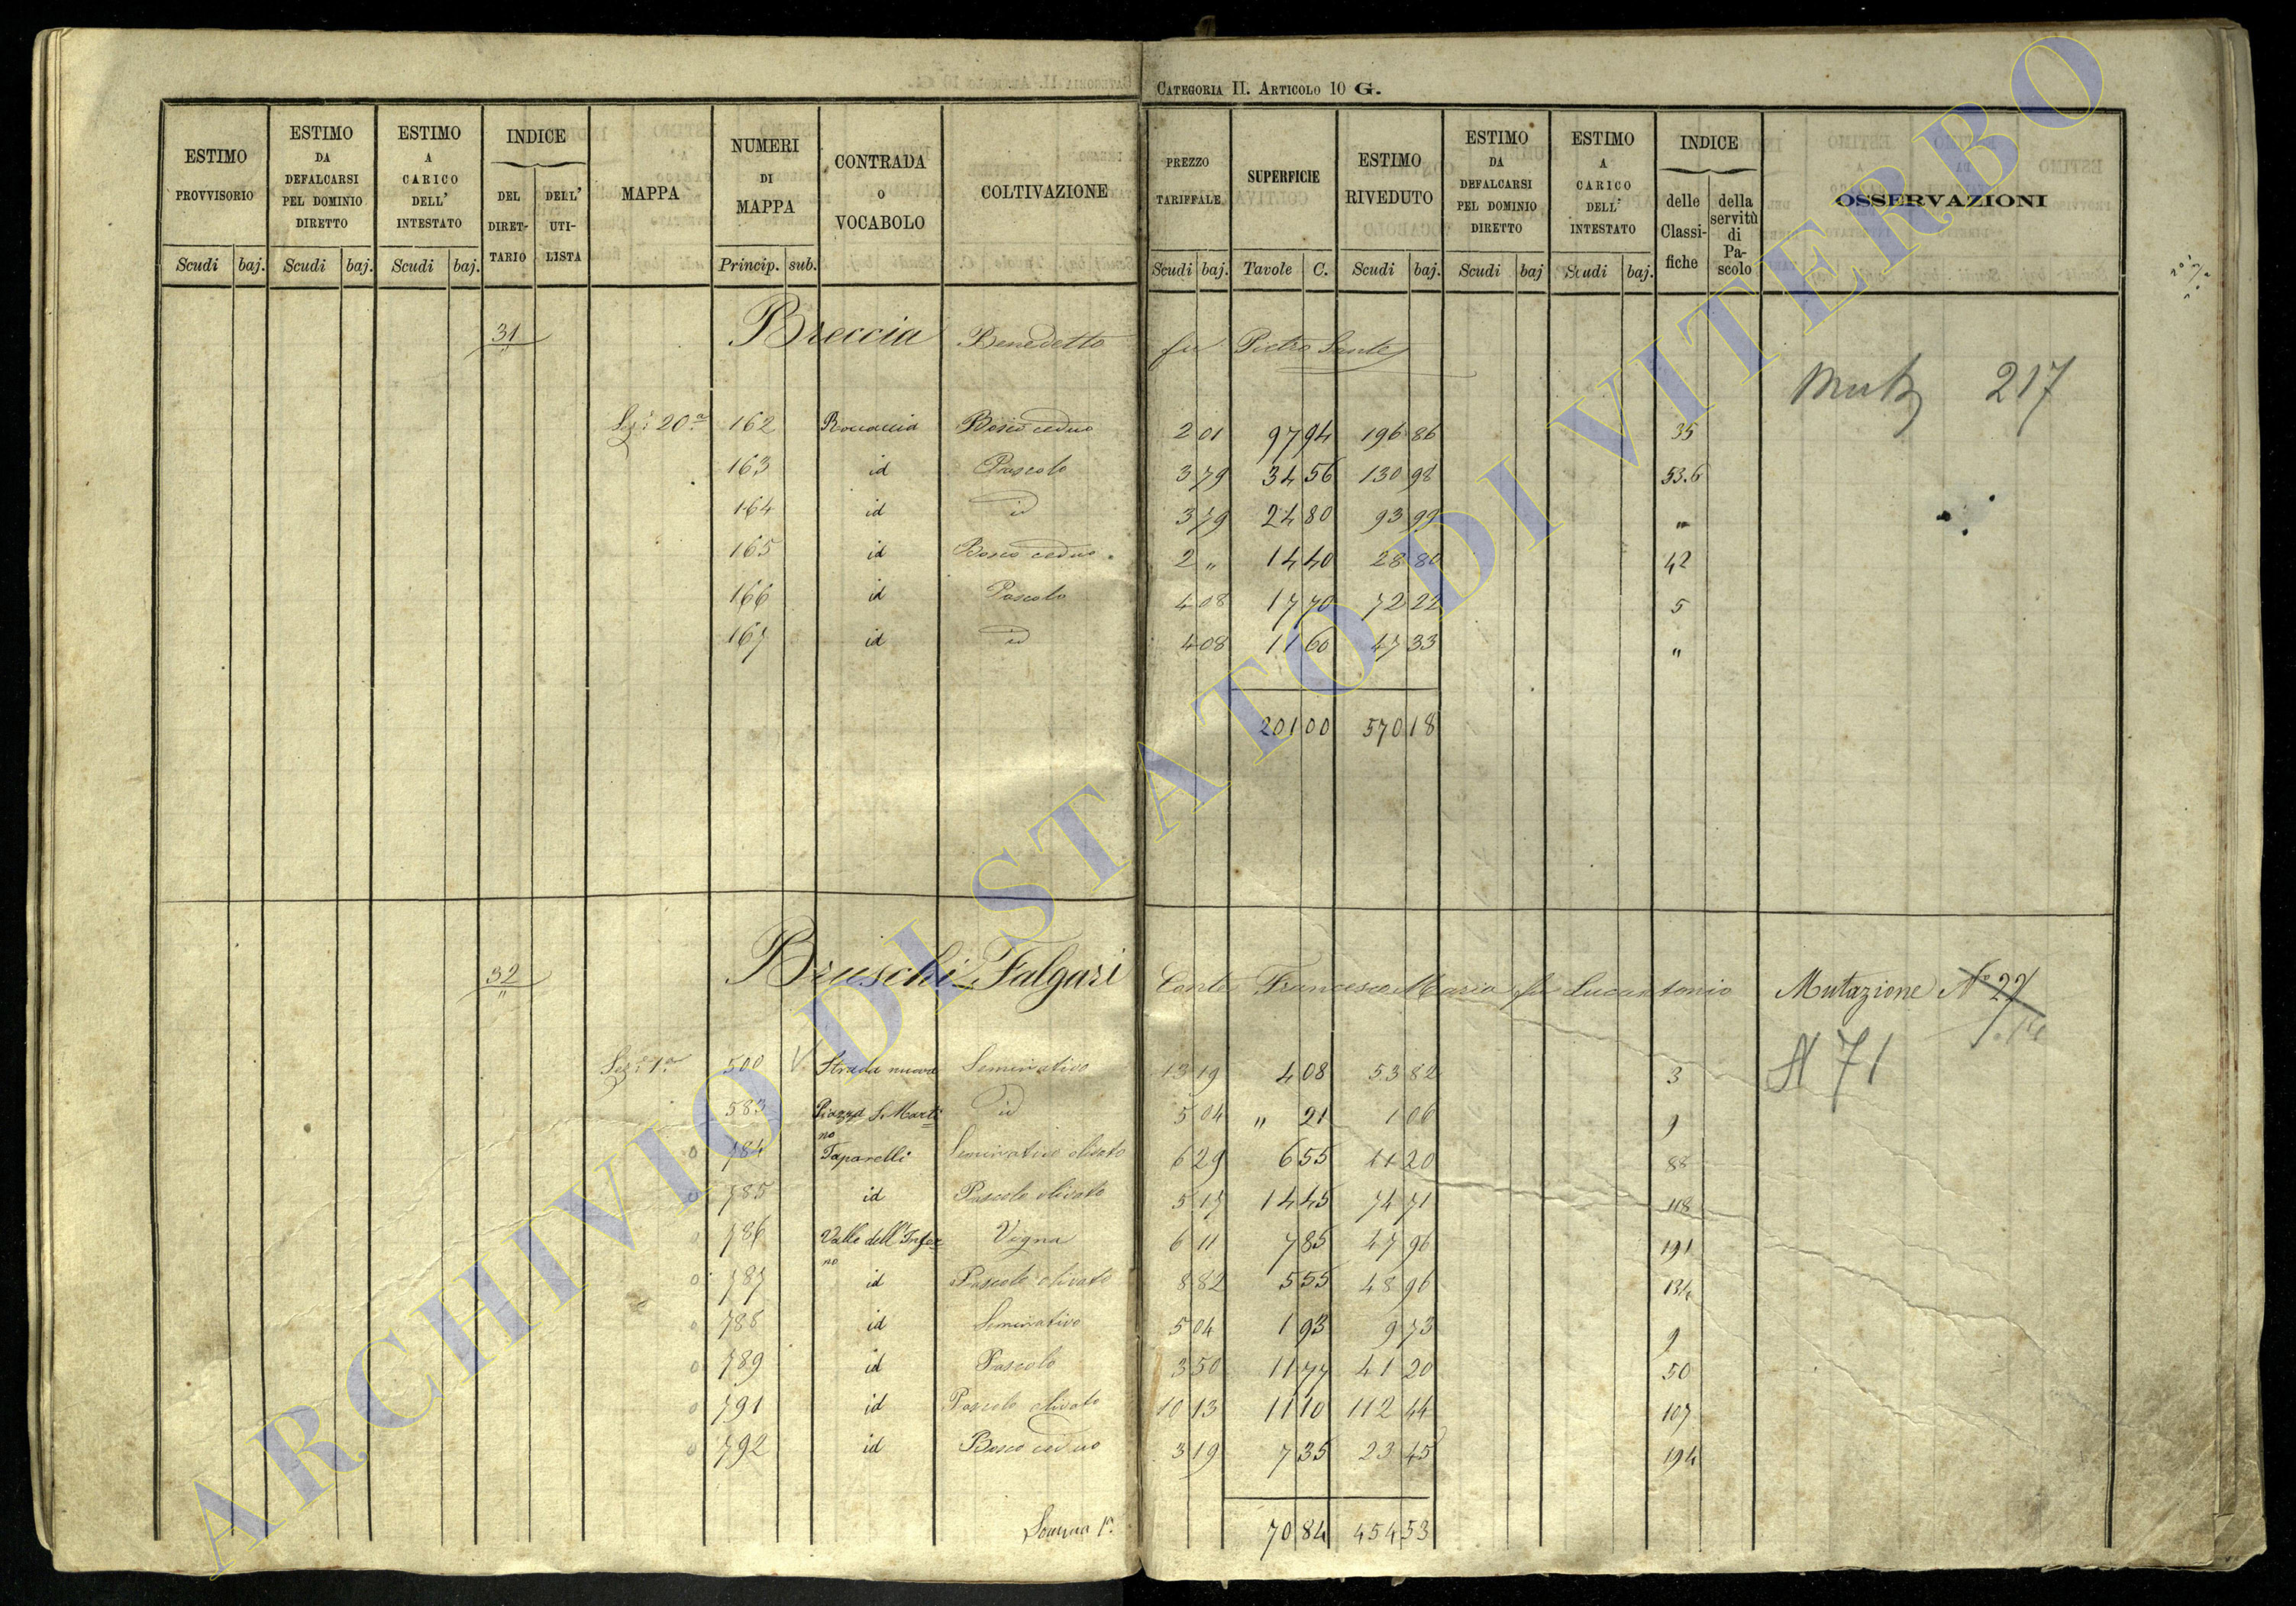 CATEGORIA II. ARTICOLO 10 G.
ESTIMO PROVVISORIO | ESTIMO DA DEFALCARSI PEL DOMINIO DIRETTO | ESTIMO A CARICO DELL' INTESTATO | INDICE DEL DIRET-TARIO | DELL' UTI-LISTA | MAPPA | NUMERI DI MAPPA | CONTRADA O VOCABOLO | COLTIVAZIONE | PREZZO TARIFFALE | SUPERFICIE | ESTIMO RIVEDUTO | ESTIMO DA DEFALCARSI PEL DOMINIO DIRETTO | ESTIMO A CARICO DELL' INTESTATO | INDICE delle Classi-fiche | della servitù di Pa-scolo | OSSERVAZIONI
Scudi baj. Scudi baj. Scudi baj. Princip. sub. Scudi baj. Tavole C. Scudi baj. Scudi baj Scudi baj.
31 Breccia Benedetto fu Pietro Sante
Mutz 217
Sez. 20.a 162 Roccaccia Bosco ceduo 2 01 97 94 196 86 35
163 id Pascolo 3 79 34 56 130 98 53.6
164 id id 3 79 24 80 93 99 "
165 id Bosco ceduo 2 " 14 40 28 80 42
166 id Pascolo 4 08 17 70 72 22 5
167 id id 4 08 11 60 47 33 "
201 00 570 18
32 Bruschi Falgari Conte Francesco Maria fu Lucantonio Mutazione N° 27
N 71
Sez. 1.a 500 V. Strada nuova Seminativo 13 19 4 08 53 82 3
583 Piazza S. Marti=no id 5 04 " 21 1 06 9
o 784 Taparelli Seminativo olivato 6 29 6 55 41 20 88
o 785 id Pascolo olivato 5 17 14 45 74 71 118
o 786 Valle dell'Infer=no Vigna 6 11 7 85 47 96 191
o 787 id Pascolo olivato 8 82 5 55 48 96 134
o 788 id Seminativo 5 04 1 93 9 73 9
o 789 id Pascolo 3 50 11 77 41 20 50
o 791 id Pascolo olivato 10 13 11 10 112 44 107
o 792 id Bosco ceduo 3 19 7 35 23 45 194
Somma 1a. 70 84 454 53
ARCHIVIO DI STATO DI VITERBO